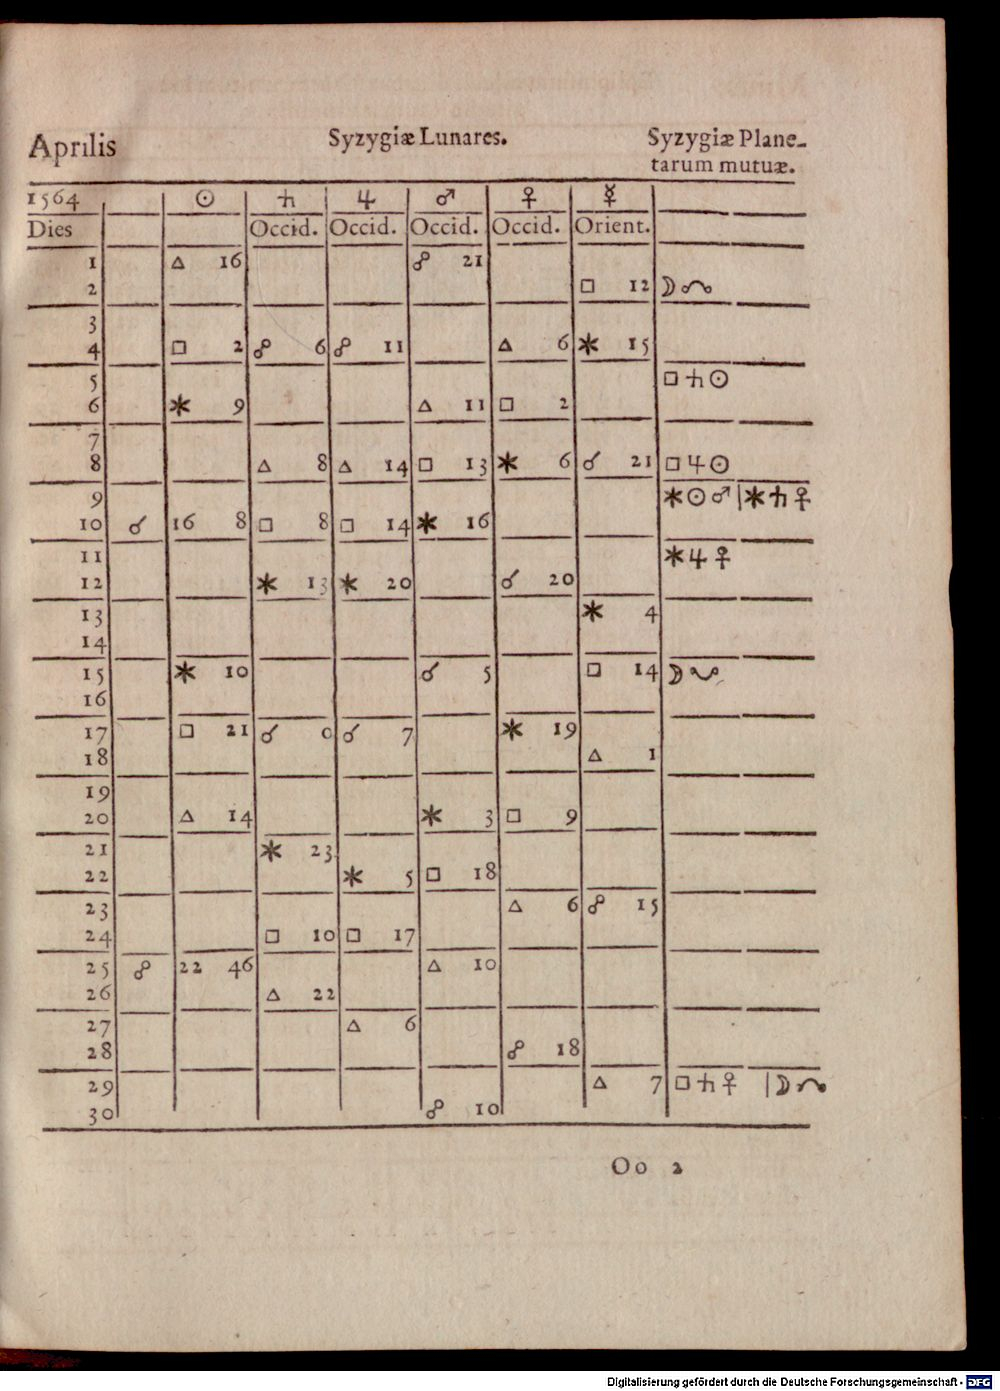 Aprilis Syzygiæ Lunares. Syzygiæ Plane-
tarum mutuæ.
1564 ☉ ♄ ♃ ♂ ♀ ☿
Dies Occid. Occid. Occid. Occid. Orient.
1 △ 16 ☍ 21
2 □ 12 ☽ ☊
3
4 □ 2 ☍ 6 ☍ 11 △ 6 ✶ 15
5 □ ♄ ☉
6 ✶ 9 △ 11 □ 2
7
8 △ 8 △ 14 □ 13 ✶ 6 ☌ 21 □ ♃ ☉
9 ✶ ☉ ♂ | ✶ ♄ ♀
10 ☌ 16 8 □ 8 □ 14 ✶ 16
11 ✶ ♃ ♀
12 ✶ 13 ✶ 20 ☌ 20
13 ✶ 4
14
15 ✶ 10 ☌ 5 □ 14 ☽ ☋
16
17 □ 21 ☌ 0 ☌ 7 ✶ 19
18 △ 1
19
20 △ 14 ✶ 3 □ 9
21 ✶ 23
22 ✶ 5 □ 18
23 △ 6 ☍ 15
24 □ 10 □ 17
25 ☍ 22 46 △ 10
26 △ 22
27 △ 6
28 ☍ 18
29 △ 7 □ ♄ ♀ | ☽ ☊
30 ☍ 10
Oo 2
Digitalisierung gefördert durch die Deutsche Forschungsgemeinschaft - DFG